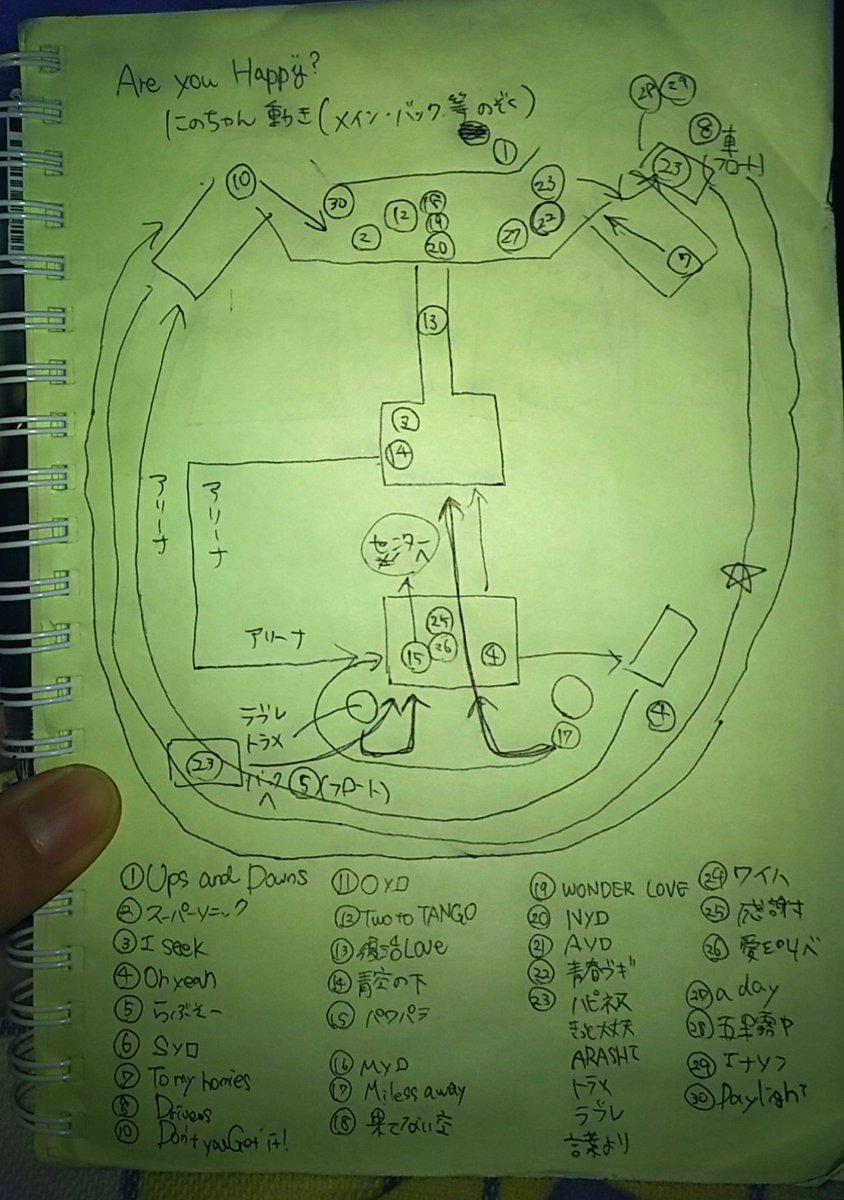 Are you Happy?
にのちゃん 動き(メイン・バック 等 のぞく)
①
㉘ ㉙
⑧ 車
(フロート)
㉓
⑩
㉚
⑫
⑱
⑲
⑳
②
㉗
㉓
㉒
⑦
⑬
③
⑭
アリーナ
アリーナ
センターへ
アリーナ
㉕
㉖
⑮
④
ラブレ
トラメ
⑰
④
㉓
バックへ ⑤(フロート)
① Ups and Downs
② スーパーソニック
③ I seek
④ Oh yeah
⑤ らぶそー
⑥ SYD
⑦ To my homies
⑧ Drivers
⑩ Don't you Get it!
⑪ OYD
⑫ Two to TANGO
⑬ 復活Love
⑭ 青空の下
⑮ パワパラ
⑯ MYD
⑰ Miles away
⑱ 果てない空
⑲ WONDER LOVE
⑳ NYD
㉑ AYD
㉒ 青春ブギ
㉓ ハピネス
きっと大丈夫
ARASHI
トラメ
ラブレ
言葉より
㉔ ワイハ
㉕ 感謝す
㉖ 愛を叫べ
a day
㉘ 五里霧中
㉙ エナソン
㉚ Daylight